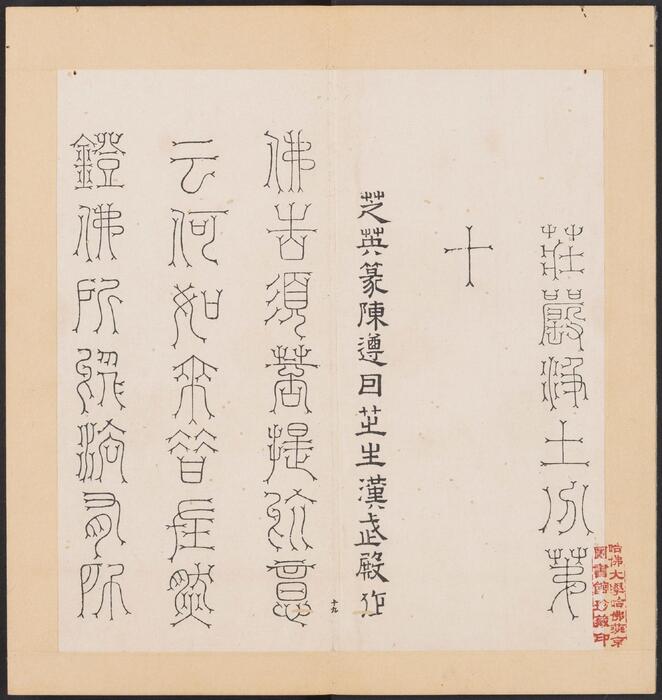 莊嚴淨土分第
十
芝英篆陳遵曰芝生漢武殿作
佛告須菩提於意
云何如來昔在然
鐙佛所於法有所
十九
哈佛大學哈佛燕京
圖書館珍藏印